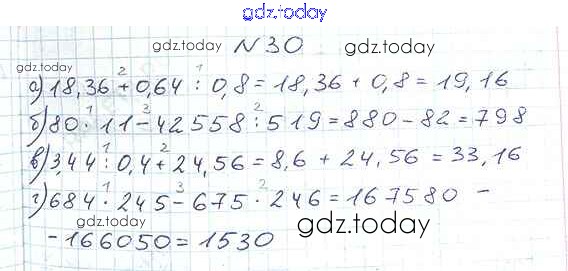 gdz.today
gdz.today N30 gdz.today
gdz.today
а) 18,36 + 0,64 : 0,8 = 18,36 + 0,8 = 19,16
б) 80 · 11 - 42558 : 519 = 880 - 82 = 798
в) 3,44 : 0,4 + 24,56 = 8,6 + 24,56 = 33,16
г) 684 · 245 - 675 · 246 = 167580 -
gdz.today gdz.today
- 166050 = 1530